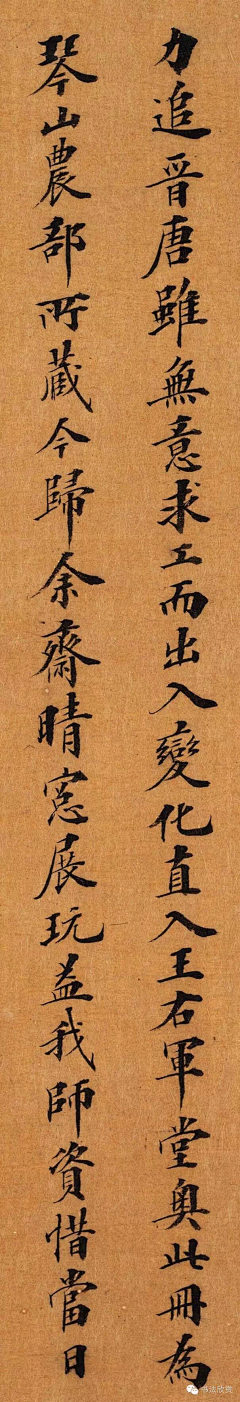 力追晋唐雖無意求工而出入變化直入王右軍堂奧此冊為
琴山農部所藏今歸余齋晴窓展玩益我師資惜當日
书法欣赏